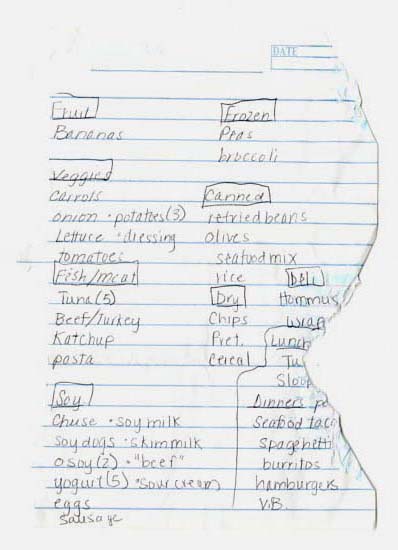 DATE
Fruit
Bananas
Frozen
Peas
broccoli
Veggies
Carrots
onion • potatoes (3)
Lettuce • dressing
Tomatoes
Canned
refried beans
olives
seafood mix
rice
Fish/meat
Tuna (5)
Beef/Turkey
Katchup
pasta
Dry
Chips
Pret.
Cereal
Deli
Hommus
Wrap
Soy
Chuse • soy milk
soy dogs • skim milk
o soy (2) • "beef"
yogurt (5) • sour cream
eggs
Sausage
Lunch
Tu
Slop
Dinners
Seafood taco
Spaghetti
burritos
hamburgers
V.B.